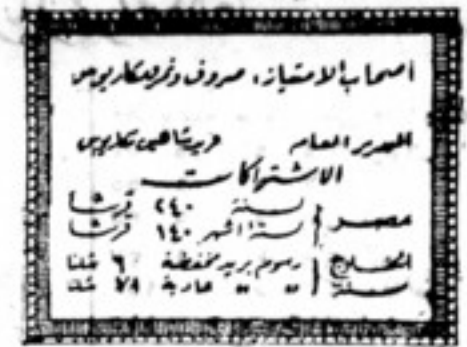 أصحاب الامتياز: صروف ونمر ومكاريوس
المدير العام فريد شاهين مكاريوس
الاشتراكات
مصر { لسنة ٢٤٠ قرشاً
لستة اشهر ١٤٠ قرشاً
الخارج { رسوم بريد مخفضة ٦ شلناً
لسنة { " " عادية ٧٨ شلناً